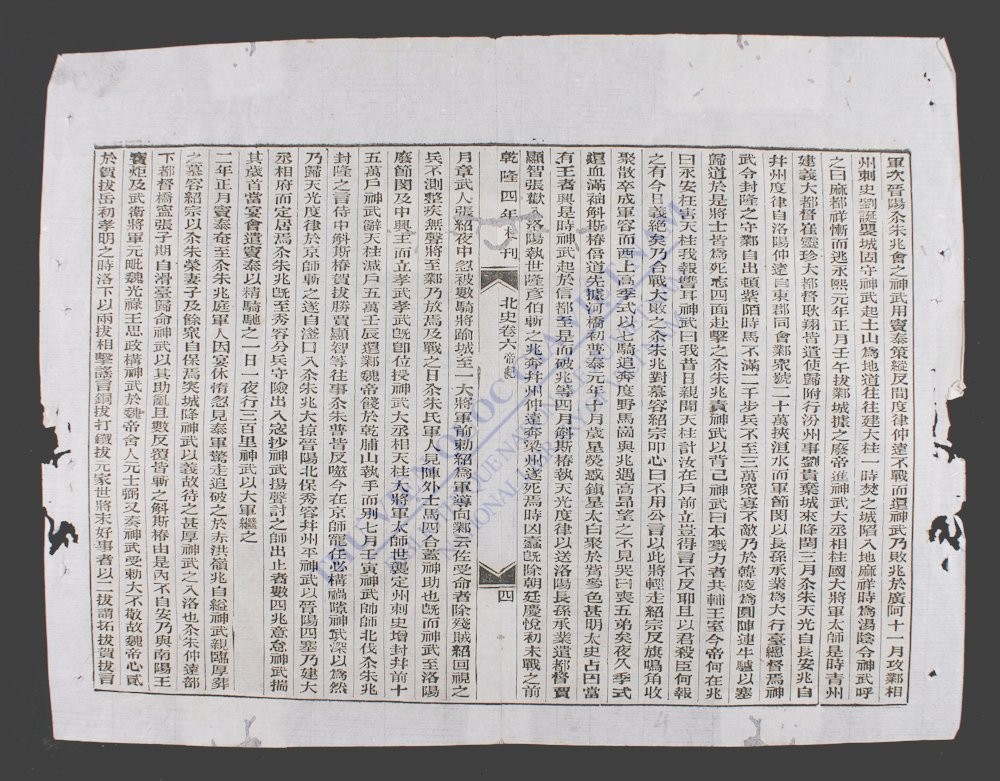 軍次晉陽尒朱兆會之神武用竇泰策縱反間度律仲遠不戰而還神武乃敗兆於廣阿十一月攻鄴相
州刺史劉誕嬰城固守神武起土山爲地道往往建大柱一時焚之城陷入地麻祥時爲湯陰令神武呼
之曰麻都祥慚而逃永熙元年正月壬午拔鄴城據之廢帝進神武大丞相柱國大將軍太師是時青州
建義大都督崔靈珍大都督耿翔皆遣使歸附行汾州事劉貴棄城來降閏三月尒朱天光自長安兆自
幷州度律自洛陽仲遠自東郡同會鄴衆號二十萬挾洹水而軍節閔以長孫承業爲大行臺總督焉神
武令封隆之守鄴自出頓紫陌時馬不滿二千步兵不至三萬衆寡不敵乃於韓陵爲圓陣連牛驢以塞
歸道於是將士皆爲死志四面赴擊之尒朱兆責神武以背己神武曰本戮力者共輔王室今帝何在兆
曰永安枉害天柱我報讐耳神武曰我昔日親聞天柱計汝在戶前立豈得言不反耶且以君殺臣何報
之有今日義絕矣乃合戰大敗之尒朱兆對慕容紹宗叩心曰不用公言以此將輕走紹宗反旗鳴角收
聚散卒成軍容而西上高季式以七騎追奔度野馬崗與兆遇高昂望之不見哭曰喪吾弟矣夜久季式
還血滿袖斛斯椿倍道先據河橋初普泰元年十月歲星熒惑鎮星太白聚於觜參色甚明太史占曰當
有王者興是時神武起於信都至是而破兆等四月斛斯椿執天光度律以送洛陽長孫承業遣都督賈
顯智張歡入洛陽執世隆彥伯斬之兆奔幷州仲遠奔梁州遂死焉時凶蠹旣除朝廷慶悅初未戰之前
乾隆四年校刊
北史卷六 帝紀
四
月章武人張紹夜中忽被數騎將踰城至一大將軍前勅紹爲軍導向鄴云佐受命者除殘賊紹回視之
兵不測整疾無聲將至鄴乃放焉及戰之日尒朱氏軍人見陣外士馬四合蓋神助也旣而神武至洛陽
廢節閔及中興主而立孝武孝武旣卽位授神武大丞相天柱大將軍太師世襲定州刺史增封幷前十
五萬戶神武辭天柱減戶五萬壬辰還鄴魏帝餞於乾脯山執手而別七月壬寅神武帥師北伐尒朱兆
封隆之言侍中斛斯椿賀拔勝賈顯智等往事尒朱普皆反噬今在京師寵任必構禍隙神武深以爲然
乃歸天光度律於京師斬之遂自滏口入尒朱兆大掠晉陽北保秀容幷州平神武以晉陽四塞乃建大
丞相府而定居焉尒朱兆旣至秀容分兵守險出入寇抄神武揚聲討之師出止者數四兆意怠神武揣
其歲首當宴會遣竇泰以精騎馳之一日一夜行三百里神武以大軍繼之
二年正月竇泰奄至尒朱兆庭軍人因宴休惰忽見泰軍驚走追破之於赤洪嶺兆自縊神武親臨厚葬
之慕容紹宗以尒朱榮妻子及餘衆自保焉突城降神武以義故待之甚厚神武之入洛也尒朱仲遠部
下都督橋寧張子期自滑臺歸命神武以其助亂且數反覆皆斬之斛斯椿由是內不自安乃與南陽王
寶炬及武衛將軍元毗魏光祿王思政構神武於魏帝舍人元士弼又奏神武受勅大不敬故魏帝心貳
於賀拔岳初孝明之時洛下以兩拔相擊謠言銅拔打鐵拔元家世將末好事者以二拔謂拓拔賀拔言